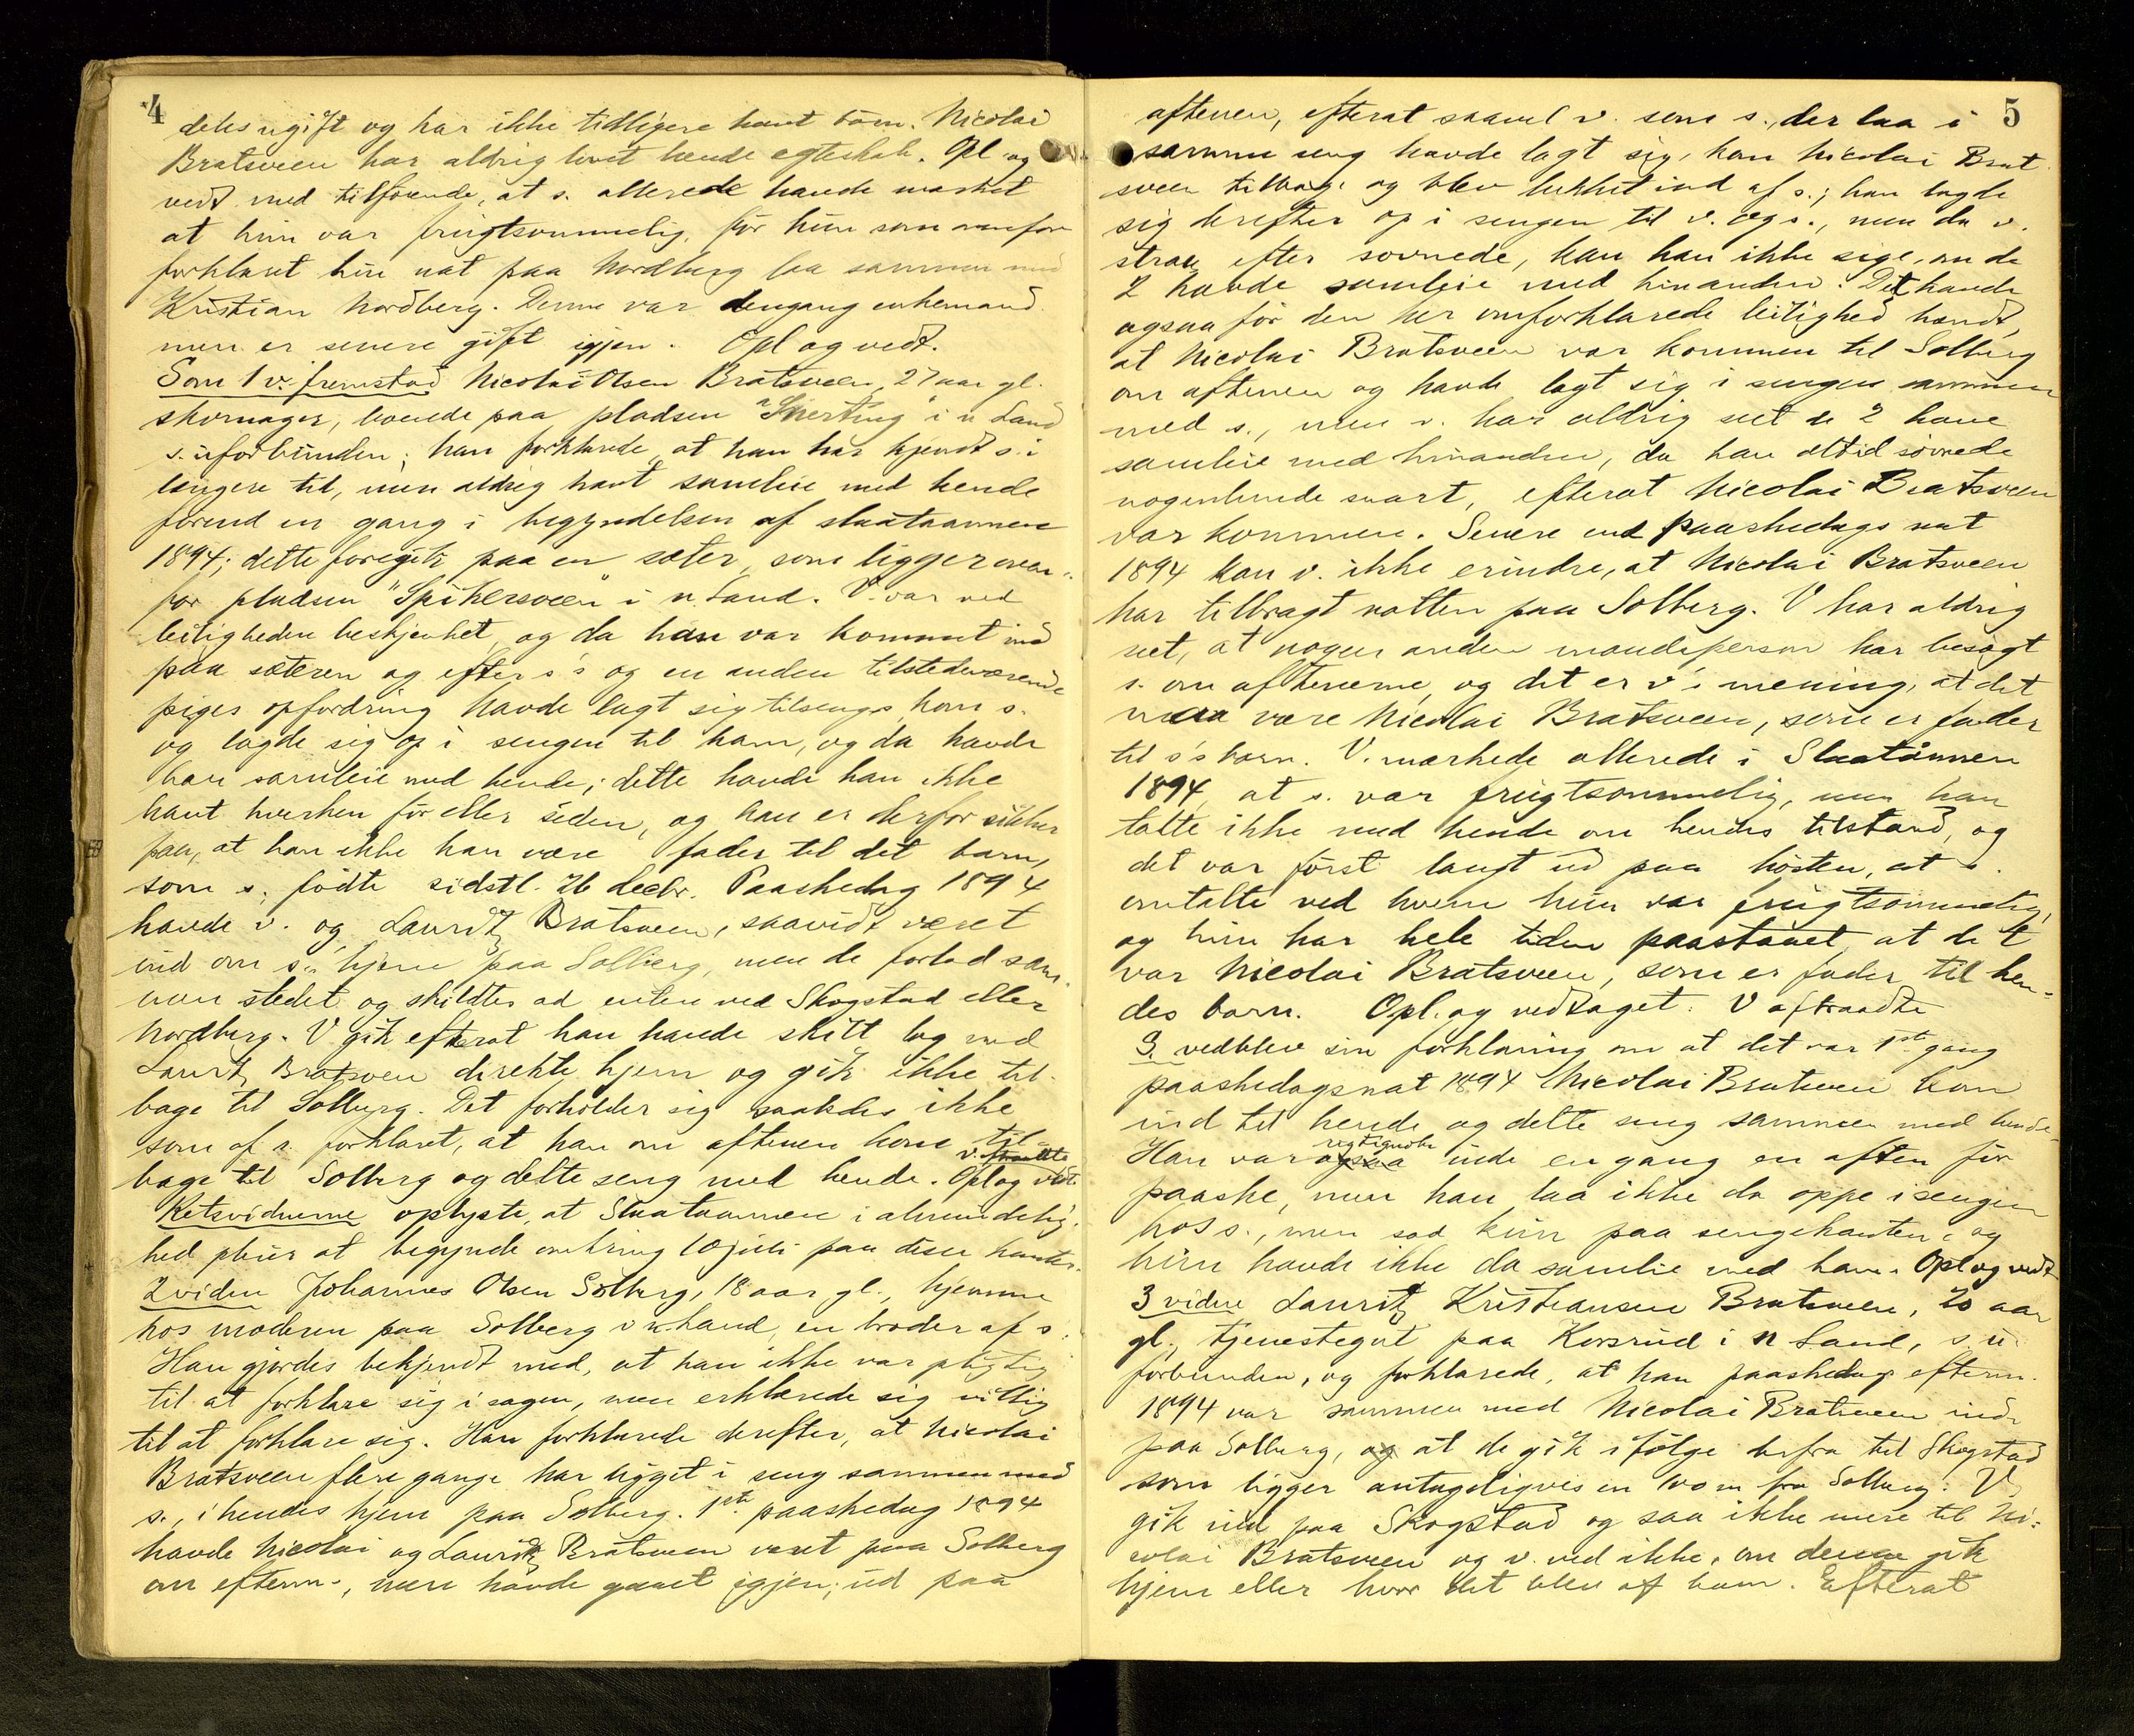 4
deles ugift og har ikke tidligere havt børn. Nicolai
Bratsveen har aldrig lovet hende egteskab. Opl og
vedt med tilføiende, at s. allerede havde mærket
at hun var frugtsommelig, før hun som ovenfor
forklaret hin nat paa Nordberg laa sammen med
Kristian Nordberg. Denne var dengang enkemand
men er senere gift igjen. Opl og vedt.
Som 1 v. fremstod Nicolai Olsen Bratsveen, 27 aar gl.
skomager, boende paa pladsen "Snerting" i n Land
s. uforbunden; han forklarede, at han har kjendt s. i
længere tid, men aldrig havt samleie med hende
forend en gang i begyndelsen af slaataannen
1894; dette foregik paa en sæter, som ligger oven-
for pladsen "Spikersveen" i n. Land. V. var ved
leiligheden beskjenket, og da han var kommet ind
paa sæteren og efter s's og en anden tilstedeværende
piges opfordring havde lagt sig tilsengs, kom s.
og lagde sig op i sengen til ham, og da havde
han samleie med hende; dette havde han ikke
havt hverken før eller siden, og han er derfor sikker
paa, at han ikke kan være fader til det barn,
som s. fødte sidstl. 26 decbr. Paaskedag 1894
havde v. og Lauritz Bratsveen, saavidt været
ind om s's hjem paa Solberg, men de forlod sam-
men stedet og skildtes ad enten ved Skogstad eller
Nordberg. V gik efterat han havde skilt lag med
Lauritz Bratsveen direkte hjem og gik ikke til-
bage til Solberg. Det forholder sig saaledes ikke
som af s. forklaret, at han om aftenen kom til-
bage til Solberg og delte seng med hende. Opl og vedt. v.
Retsvidnerne oplyste, at Slaataannen i almindelig-
hed pleier at begynde omkring 10 juli paa disse kanter.
2 vidne Johannes Olsen Solberg, 18 aar gl., hjemme
hos moderen paa Solberg i n Land, en broder af s.
Han gjordes bekjendt med, at han ikke var pligtig
til at forklare sig i sagen, men erklærede sig villig
til at forklare sig. Han forklarede derefter, at Nicolai
Bratsveen flere gange har ligget i seng sammen med
s., i hendes hjem paa Solberg. 1ste paaskedag 1894
havde Nicolai og Lauritz Bratsveen været paa Solberg
om efterm., men havde gaaet igjen; ud paa
5
aftenen, efterat saavel v. som s., der laa i
samme seng havde lagt sig, kom Nicolai Brat-
sveen tilbage og blev lukket ind af s.; han lagde
sig derefter op i sengen til v. og s., men da v.
strax efter sovnede, kan han ikke sige, om de
2 havde samleie med hinanden. Det havde
ogsaa før den her omforklarede leilighed hændt,
at Nicolai Bratsveen var kommen til Solberg
om aftenen og havde lagt sig i sengen sammen
med s., men v. har aldrig seet de 2 have
samleie med hinanden, da han altid sovnede
nogenlunde snart, efterat Nicolai Bratsveen
var kommen. Senere end paaskedags nat
1894 kan v. ikke erindre, at Nicolai Bratsveen
har tilbragt natten paa Solberg. V har aldrig
seet, at nogen anden mandsperson har besøgt
s. om aftenerne, og det er v's mening, at det
maa være Nicolai Bratsveen, som er fader
til s's barn. V. mærkede allerede i Slaatannen
1894, at s. var frugtsommelig, men han
talte ikke med hende om hendes tilstand, og
det var først langt ud paa høsten, at s.
omtalte ved hvem hun var frugtsommelig,
og hun har hele tiden paastaaet, at det
var Nicolai Bratsveen, som er fader til hen-
des barn. Opl. og vedtaget. V aftraadte
S. vedblev sin forklaring om at det var 1ste gang
paaskedagsnat 1894 Nicolai Bratsveen kom
ind til hende og delte seng sammen med hende.
rigtignok
Han var ogsaa inde en gang en aften før
paaske, men han laa ikke da oppe i sengen
hos s., men sad kun paa sengekanten, og
hun havde ikke da samleie med ham. Opl og vedt
3 vidne Lauritz Kristiansen Bratsveen, 20 aar
gl., tjenestegut paa Korsrud i n Land, s. u-
forbunden, og forklarede, at han paaskedag efterm.
1894 var sammen med Nicolai Bratsveen inde
paa Solberg, og at de gik i følge derfra til Skogstad
som ligger antageligvis en 100 m fra Solberg. V
gik ind paa Skogstad og saa ikke mere til Ni-
colai Bratsveen og v. ved ikke, om denne gik
hjem eller hvor det blev af ham. Efterat